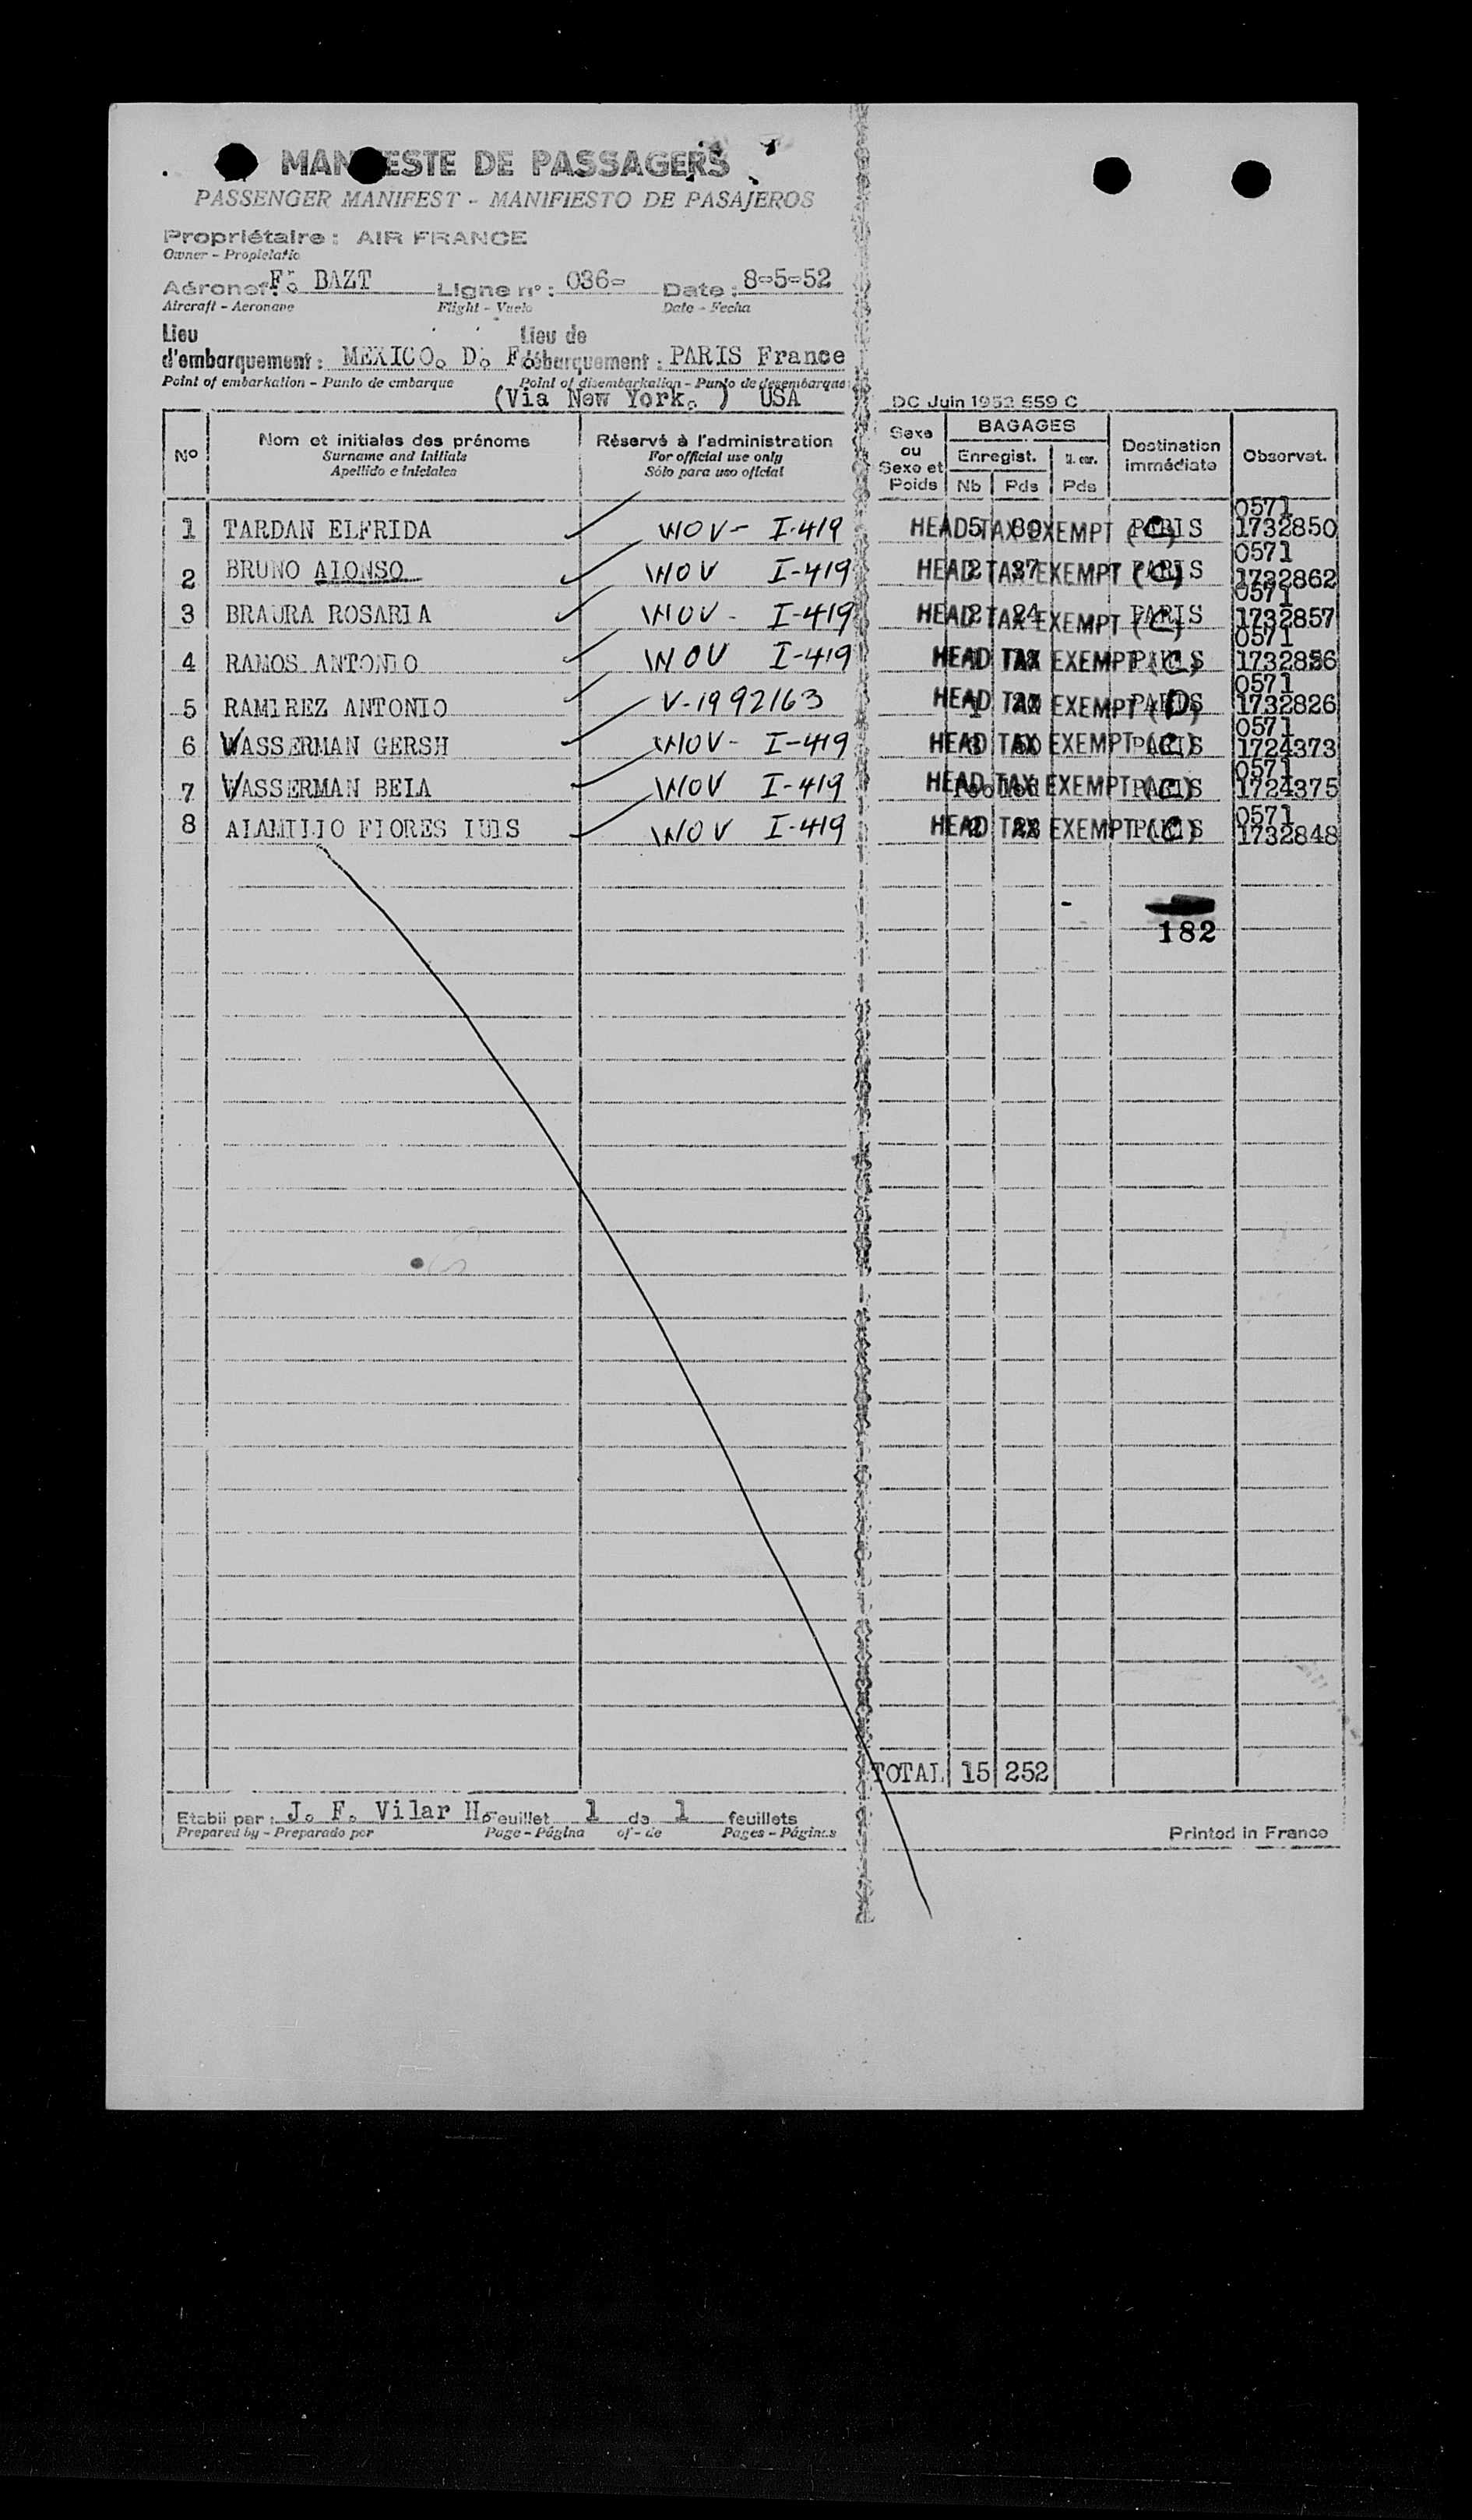 MANIFESTE DE PASSAGERS
PASSENGER MANIFEST - MANIFIESTO DE PASAJEROS
Propriétaire : AIR FRANCE
Owner - Propietario
Aéronef: F. BAZT Ligne n° : 036- Date : 8-5-52
Aircraft - Aeronave Flight - Vuelo Date - Fecha
Lieu Lieu de
d'embarquement : MEXICO. D. F. débarquement : PARIS France
Point of embarkation - Punto de embarque Point of disembarkation - Punto de desembarque
(Via New York. ) USA
DC Juin 1952 559 C
N° Nom et initiales des prénoms Réservé à l'administration Sexe ou Sexe et Poids BAGAGES Destination immédiate Observat.
Surname and Initials For official use only Enregist.
Apellido e iniciales Sólo para uso oficial Nb Pds Pds
1 TARDAN ELFRIDA WOV - I-419 HEAD TAX EXEMPT (C) 5 PARIS 0571 1732850
2 BRUNO ALONSO WOV I-419 HEAD TAX EXEMPT (C) 2 37 PARIS 0571 1732862
3 BRAURA ROSARIA WOV - I-419 HEAD TAX EXEMPT (C) 2 24 PARIS 0571 1732857
4 RAMOS ANTONIO WOV I-419 HEAD TAX EXEMPT (C) PARIS 0571 1732856
5 RAMIREZ ANTONIO V-1992163 HEAD TAX EXEMPT (D) 1 PARIS 0571 1732826
6 WASSERMAN GERSH WOV - I-419 HEAD TAX EXEMPT (C) PARIS 0571 1724373
7 WASSERMAN BELA WOV I-419 HEAD TAX EXEMPT (C) PARIS 0571 1724375
8 ALAMILLO FLORES LUIS WOV I-419 HEAD TAX EXEMPT (C) 2 PARIS 0571 1732848
182
TOTAL 15 252
Etabli par : J. F. Vilar H. Feuillet 1 de 1 feuillets
Prepared by - Preparado por Page - Página of - de Pages - Páginas
Printed in France